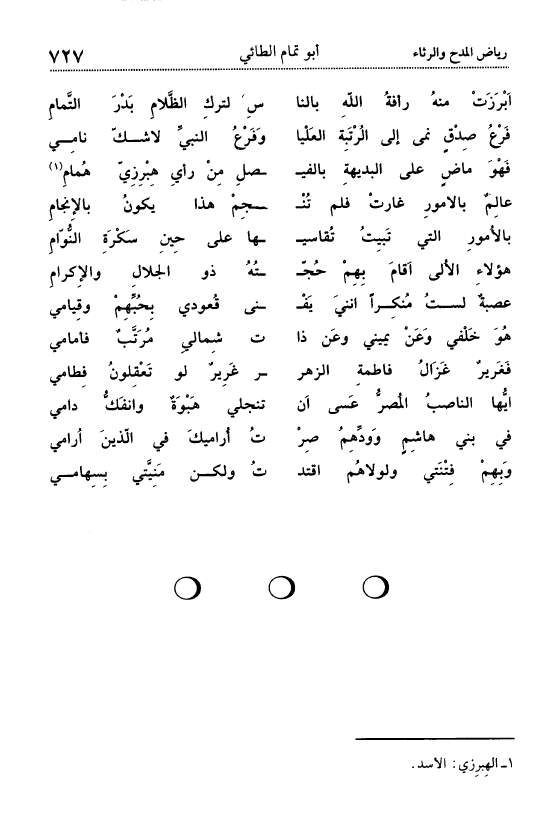 رياض المدح والرثاء أبو تمام الطائي ٧٢٧
أَبْرَزَتْ منهُ رأفةُ اللّهِ بالنا سِ لتركِ الظَّلامِ بَدْرَ التَّمامِ
فَرْعُ صِدْقٍ نمى إلى الرُتْبَة العَليا وَفَرْعُ النبيِّ لاشكَّ نامي
فَهْوَ ماضٍ على البديهةِ بالفيـ ـصلِ مِنْ رأي هِبْرِزيّ هُمامِ(١)
عالِمٌ بالامورِ غارتْ فلم تُنْـ ـجمْ هذا يكونُ بالإنجامِ
بالأمورِ التي تَبيتُ تُقاسيـ ـها على حينِ سَكْرَةِ النُّوّامِ
هؤلاءِ الألى أقامَ بِهِمْ حُجّـ ـتُهُ ذو الجلالِ والإكرامِ
عصبةٌ لستُ مُنكراً انني يَفْـ ـنى قُعودي بِحُبِّهِمْ وقيامي
هُوَ خَلْفي وَعَنْ يميني وعَن ذا ت شمالي مُرَتَّبٌ فامامي
فَغَريرٌ غَزَالُ فاطمةِ الزهر ـر غَريرٌ لو تَعْقِلونُ فِطامي
ايُّها الناصبُ المُصرُّ عَسى اَن تنجلي هَبْوَةٌ وانفَكُّ دامي
في بني هاشمٍ وَوِدِّهِمُ صِرْ تُ أراميكَ في الّذينَ أرامي
وَبِهِمْ فِتْنَتي ولولاهُم اقتد تُ ولكـن مَنِيَّتي بِسِهامـي
١ـ الهِبرِزي: الاسد.